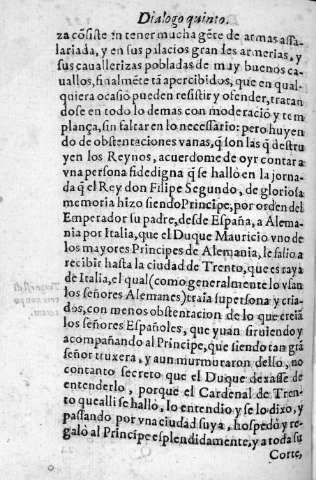 Dialogo quinto.
za cõsiste in tener mucha gẽte de armas assa
lariada, y en sus palacios grandes armerias, y
sus cauallerizas pobladas de muy buenos ca-
uallos, finalmẽte tã apercibidos, que en qual-
quiera ocasiõ pueden resistir y ofender, tratan
dose en todo lo demas con moderaciõ y tem
plança, sin faltar en lo necessario: pero huyen
do de obstentaciones vanas, q̃ son las q̃ destru
yen los Reynos, acuerdome de oyr contar a
vna persona fidedigna q̃ se hallò en la jorna-
da q̃ el Rey don Filipe Segundo, de gloriosa
memoria hizo siendo Principe, por orden del
Emperador su padre, desde España, a Alema-
nia por Italia, que el Duque Mauricio vno de
los mayores Principes de Alemania, le salio a
recibir hasta la ciudad de Trento, que es raya
de Italia, el qual (como generalmente lo vsan
los señores Alemanes) traîa su persona y cria-
dos, con menos obstentacion de lo que creîã
los señores Españoles, que yuan siruiendo y
acompañando al Principe, que siendo tan grã
señor truxera, y aun murmuraron dello, no
contanto secreto que el Duque dexasse de
entenderlo, porque el Cardenal de Tren-
to que alli se hallò, lo entendio y se lo dixo, y
passando por vna ciudad suya, hospedò y re-
galò al Principe esplendidamente, y a toda su
Corte,